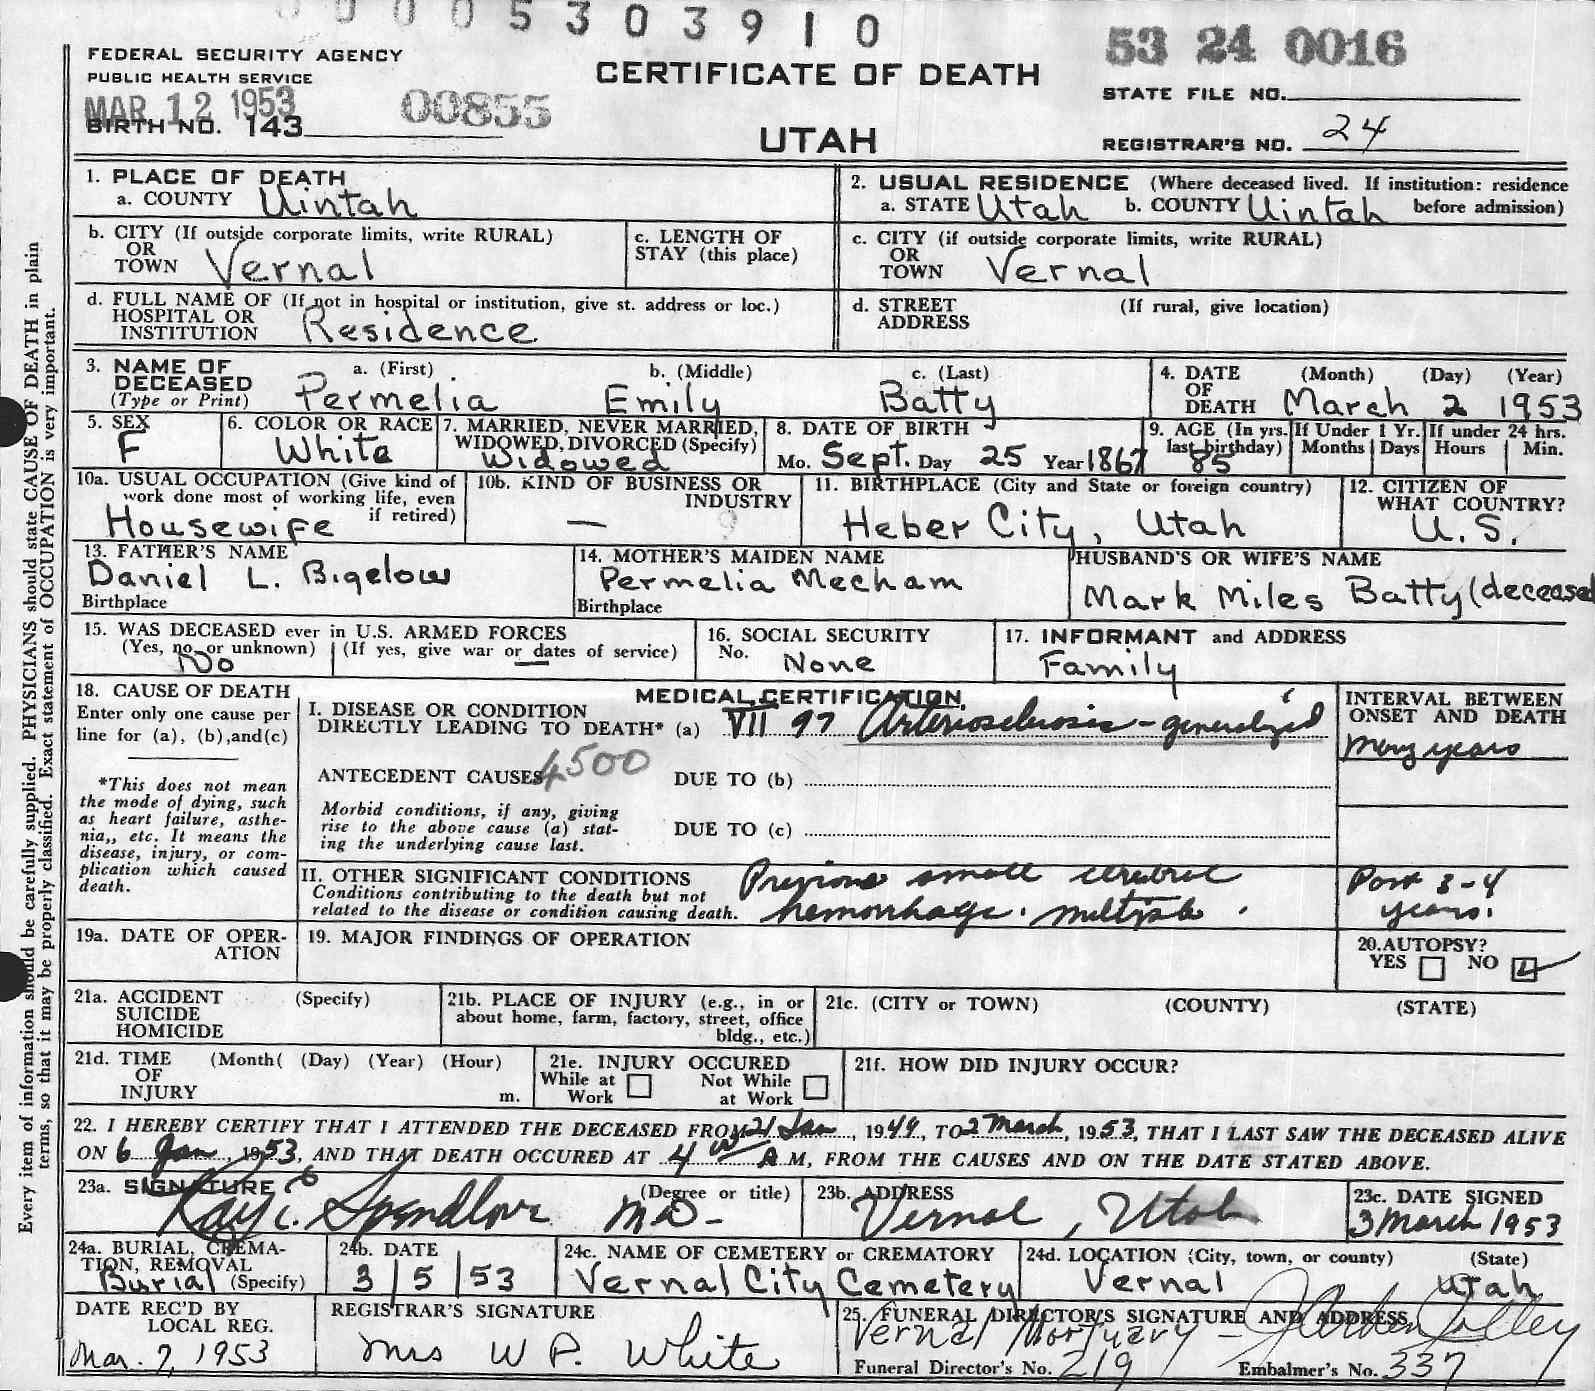 0 0 0 0 5 3 0 3 9 1 0
53 24 0016
FEDERAL SECURITY AGENCY
PUBLIC HEALTH SERVICE
CERTIFICATE OF DEATH
STATE FILE NO.
MAR 12 1953
00855
BIRTH NO. 143
UTAH
REGISTRAR'S NO. 24
1. PLACE OF DEATH
a. COUNTY Uintah
2. USUAL RESIDENCE (Where deceased lived. If institution: residence
a. STATE Utah b. COUNTY Uintah before admission)
b. CITY (If outside corporate limits, write RURAL)
OR
TOWN Vernal
c. LENGTH OF
STAY (this place)
c. CITY (if outside corporate limits, write RURAL)
OR
TOWN Vernal
d. FULL NAME OF (If not in hospital or institution, give st. address or loc.)
HOSPITAL OR
INSTITUTION Residence
d. STREET (If rural, give location)
ADDRESS
3. NAME OF
DECEASED
(Type or Print)
a. (First) b. (Middle) c. (Last)
Permelia Emily Batty
4. DATE (Month) (Day) (Year)
OF
DEATH March 2 1953
5. SEX
F
6. COLOR OR RACE
White
7. MARRIED, NEVER MARRIED,
WIDOWED, DIVORCED (Specify)
Widowed
8. DATE OF BIRTH
Mo. Sept. Day 25 Year 1867
9. AGE (In yrs.
last birthday)
85
If Under 1 Yr.
Months Days
If under 24 hrs.
Hours Min.
10a. USUAL OCCUPATION (Give kind of
work done most of working life, even
if retired)
Housewife
10b. KIND OF BUSINESS OR
INDUSTRY
—
11. BIRTHPLACE (City and State or foreign country)
Heber City, Utah
12. CITIZEN OF
WHAT COUNTRY?
U.S.
13. FATHER'S NAME
Daniel L. Bigelow
Birthplace
14. MOTHER'S MAIDEN NAME
Permelia Mecham
Birthplace
HUSBAND'S OR WIFE'S NAME
Mark Miles Batty (deceased
15. WAS DECEASED ever in U.S. ARMED FORCES
(Yes, no, or unknown) (If yes, give war or dates of service)
No —
16. SOCIAL SECURITY
No. None
17. INFORMANT and ADDRESS
Family
18. CAUSE OF DEATH
Enter only one cause per
line for (a), (b),and(c)
*This does not mean
the mode of dying, such
as heart failure, asthe-
nia,, etc. It means the
disease, injury, or com-
plication which caused
death.
MEDICAL CERTIFICATION
I. DISEASE OR CONDITION
DIRECTLY LEADING TO DEATH* (a) VII 97 Arteriosclerosis - generalized
ANTECEDENT CAUSES 4500 DUE TO (b)
Morbid conditions, if any, giving
rise to the above cause (a) stat-
ing the underlying cause last.
DUE TO (c)
INTERVAL BETWEEN
ONSET AND DEATH
Many years
II. OTHER SIGNIFICANT CONDITIONS
Conditions contributing to the death but not
related to the disease or condition causing death.
Previous small cerebral
hemorrhage. multiple.
Past 3-4
years.
19a. DATE OF OPER-
ATION
19. MAJOR FINDINGS OF OPERATION
20. AUTOPSY?
YES NO
21a. ACCIDENT (Specify)
SUICIDE
HOMICIDE
21b. PLACE OF INJURY (e.g., in or
about home, farm, factory, street, office
bldg., etc.)
21c. (CITY or TOWN) (COUNTY) (STATE)
21d. TIME (Month( (Day) (Year) (Hour)
OF
INJURY m.
21e. INJURY OCCURED
While at Work Not While at Work
21f. HOW DID INJURY OCCUR?
22. I HEREBY CERTIFY THAT I ATTENDED THE DECEASED FROM 21 Jan, 1949, TO 2 March, 1953, THAT I LAST SAW THE DECEASED ALIVE
ON 6 Jan, 1953, AND THAT DEATH OCCURED AT 4 A M, FROM THE CAUSES AND ON THE DATE STATED ABOVE.
23a. SIGNATURE (Degree or title)
Ray C. Spendlove MD-
23b. ADDRESS
Vernal, Utah
23c. DATE SIGNED
3 March 1953
24a. BURIAL, CREMA-
TION, REMOVAL
Burial (Specify)
24b. DATE
3/5/53
24c. NAME OF CEMETERY or CREMATORY
Vernal City Cemetery
24d. LOCATION (City, town, or county) (State)
Vernal Utah
DATE REC'D BY
LOCAL REG.
Mar. 7, 1953
REGISTRAR'S SIGNATURE
Mrs W P. White
25. FUNERAL DIRECTOR'S SIGNATURE AND ADDRESS
Vernal Mortuary - Jolley
Funeral Director's No. 219 Embalmer's No. 337
Every item of information should be carefully supplied. PHYSICIANS should state CAUSE OF DEATH in plain
terms, so that it may be properly classified. Exact statement of OCCUPATION is very important.